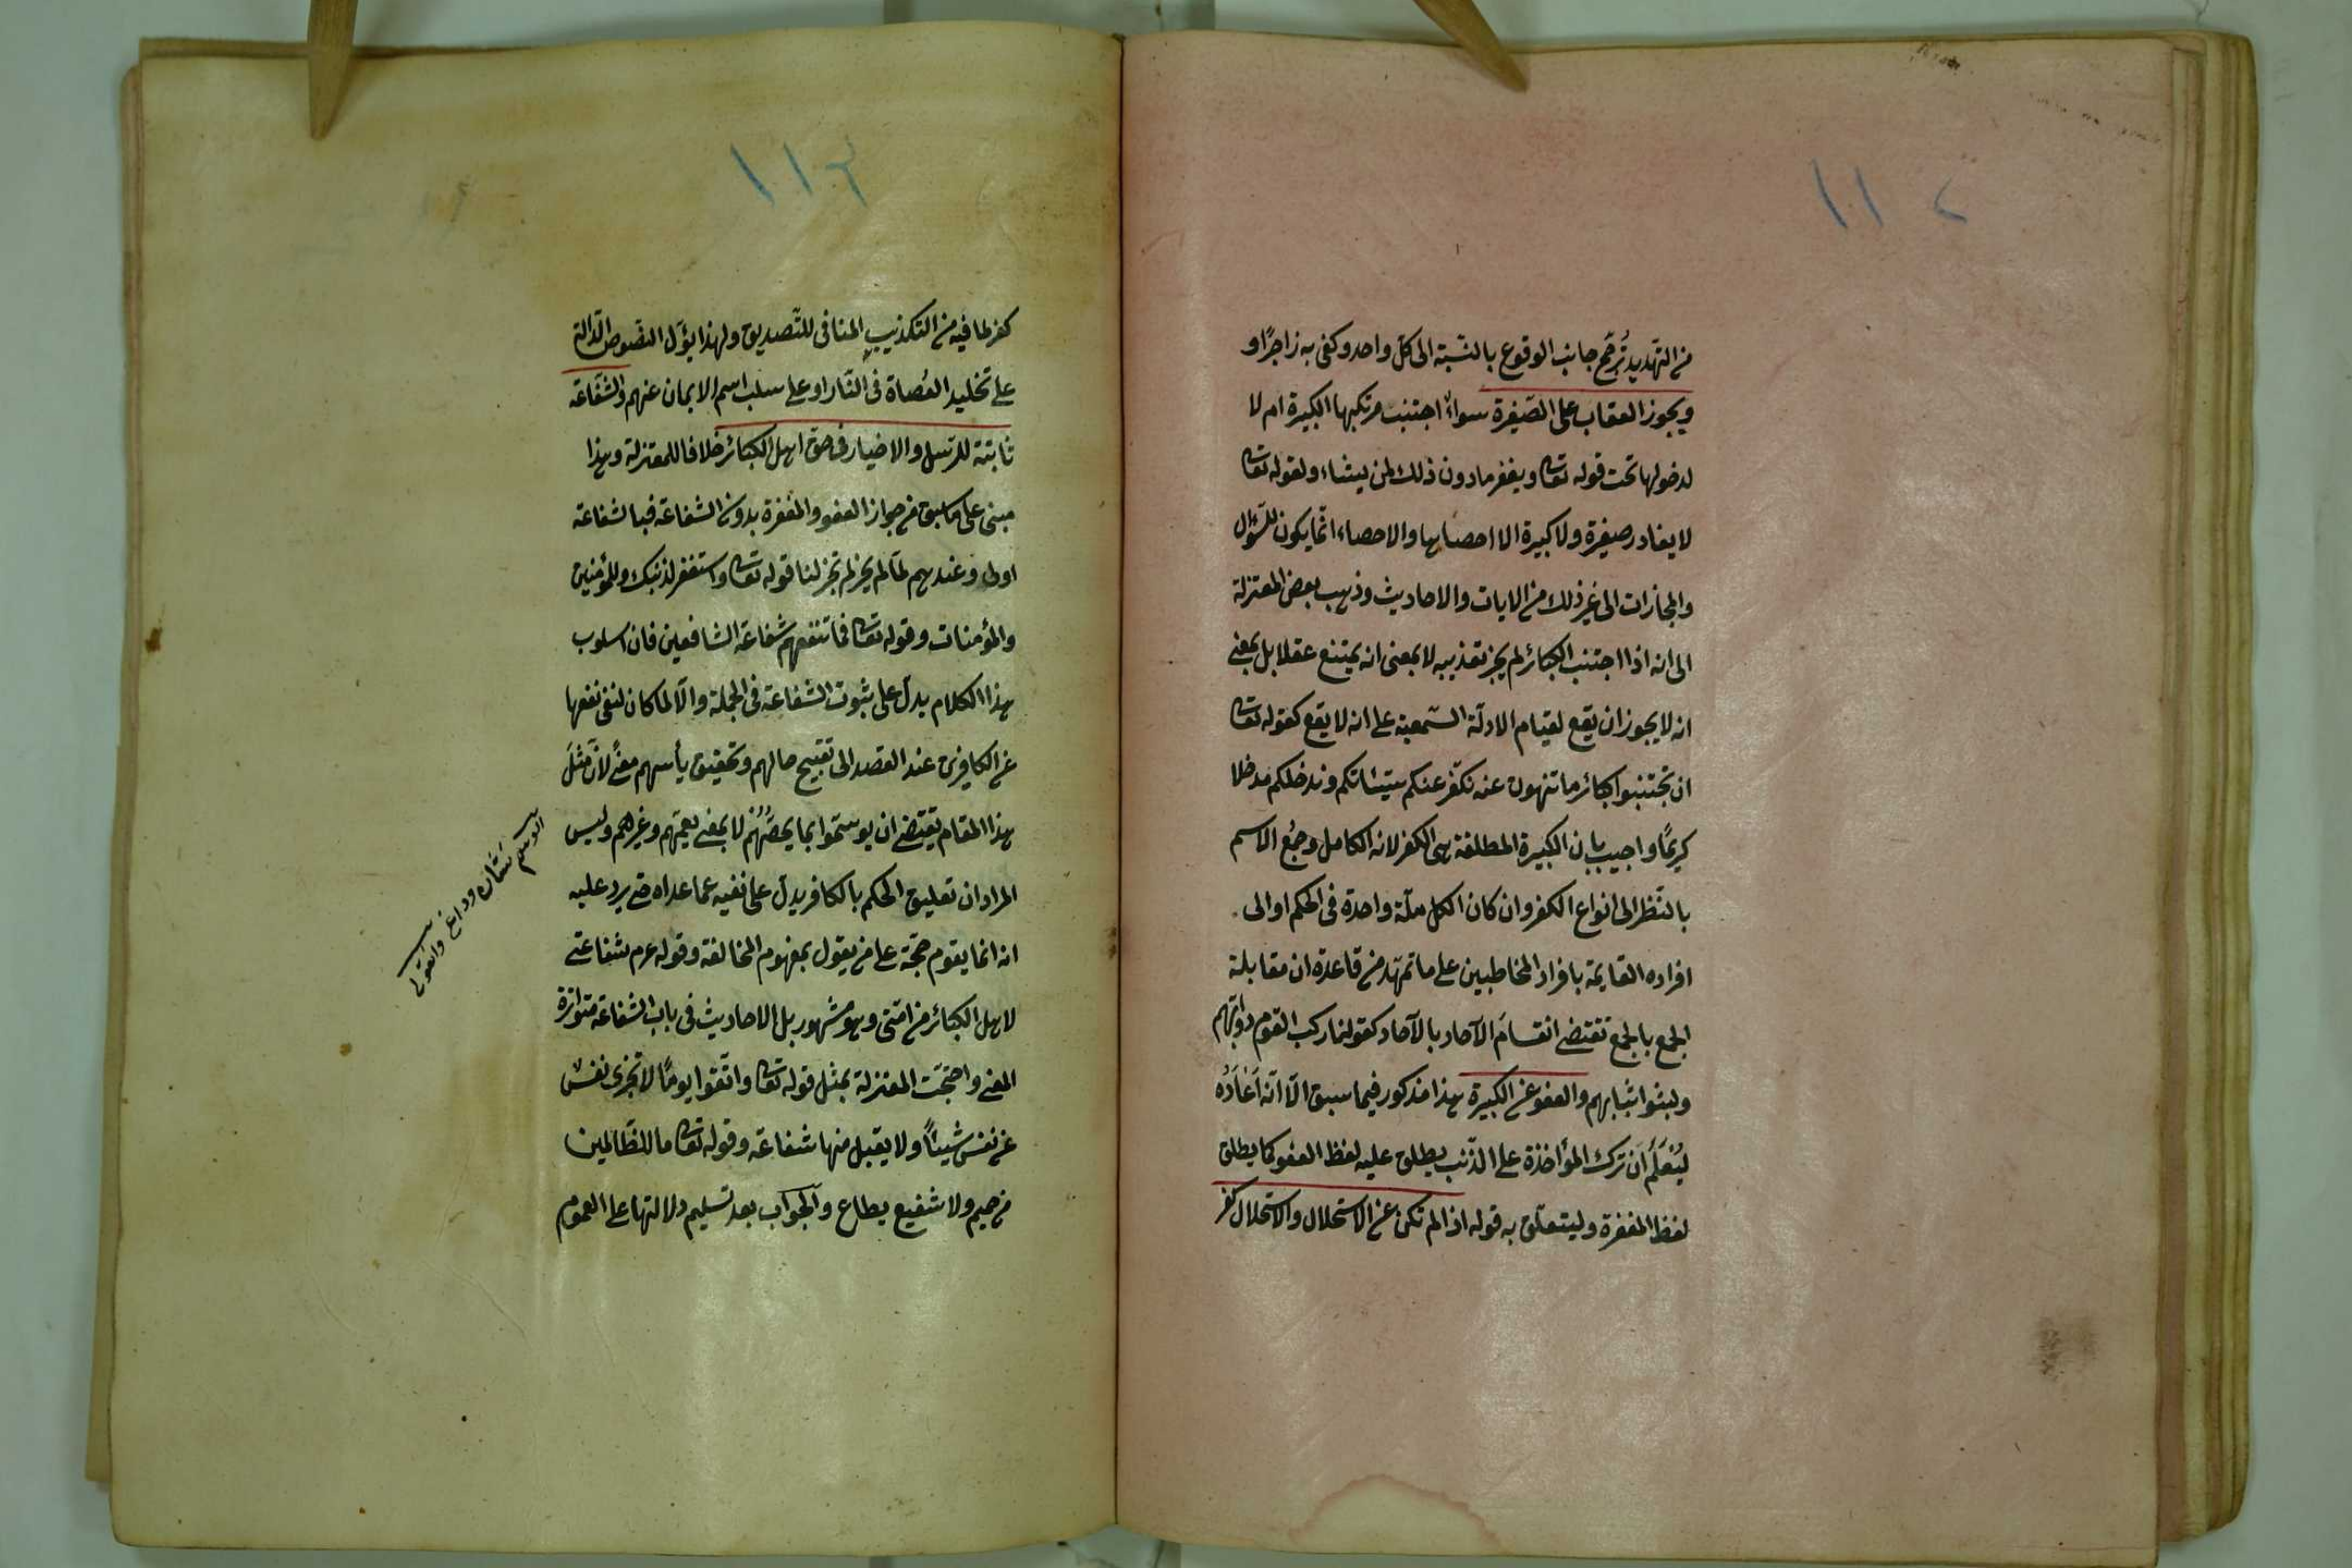 ١١٢
من التهديد تُرجّح جانب الوقوع بالنسبة الى كل واحد وكفى به زاجرًا و
ويجوز العقاب على الصّغيرة سواءٌ اجتنب مرتكبها الكبيرة ام لا
لدخولها تحت قوله تعالى ويغفر ما دون ذلك لمن يشاء ولقوله تعالى
لا يغادر صغيرة ولا كبيرة الا احصيها والاحصاء انّما يكون للسّؤال
والمجازات الى غير ذلك من الايات والاحاديث وذهب بعض المعتزلة
الى انه اذا اجتنب الكبائر لم يجز تعذيبه لا بمعنى انه يمتنع عقلا بل بمعنى
انه لا يجوز ان يقع لقيام الادلّة السّمعية على انه لا يقع كقوله تعالى
ان تجتنبوا كبائر ما تنهون عنه نكفّر عنكم سيّئاتكم وندخلكم مدخلا
كريمًا واجيب بان الكبيرة المطلقة هى الكفر لانه الكامل وجمُع الاسم
بالنّظر الى انواع الكفر وان كان الكل ملّة واحدة فى الحكم او الى
افراده القايمة بافراد المخاطبين على ما تمهّد من قاعدة ان مقابلة
الجمع بالجمع تقتضى انقسامَ الآحاد بالآحاد كقولنا ركب القوم دوابّهم
ولبثوا ثيابهم والعفو عن الكبيرة هذا مذكور فيما سبق الّا انّه اَعَادَهُ
ليُعْلَمَ اَنّ ترك المؤاخذة على الذّنب يطلق عليه لفظ العفو كما يطلق
لفظ المغفرة وليتعلّق به قوله اذا لم تكن عن الاستحلال والاستحلال كفر
١١٣
كفر لما فيه من التكذيب المنافى للتّصديق ولهذا يؤَل النصّوص الدّالة
على تخليد العُصاة فى النّار او على سلب اسم الايمان عنهم والشّفاعة
ثابتة للرّسل والاخيار فى حق اهل الكبائر خلافا للمعتزلة وهذا
مبنى على ما سبق من جواز العفو والمغفرة بدون الشفاعة فبالشفاعة
اولى وعندهم لمّا لم يجز لم تجز لنا قوله تعالى واستغفر لذنبك وللمؤمنين
والمؤمنات وقوله تعالى فما تنفعهم شفاعة الشافعين فان اسلوب
هذا الكلام يدلّ على ثبوت الشفاعة فى الجملة والّا لما كان لنفى نفعها
عن الكافرين عند القصد الى تقبيح حالهم وتحقيق يأسهم معنًى لانّ مثلَ
هذا المقام يقتضى ان يوسمّوا بما يخصّهُم لا بمعنى يعمّهم وغيرهم وليس
المراد ان تعليق الحكم بالكافر يدل على نفيه عما عداه حتى يرد عليه
انه انما يقوم حجّة على من يقول بمفهوم المخالفة وقوله عم شفاعتى
لاهل الكبائر من امّتى وهو مشهور بل الاحاديث فى باب الشفاعة متواترة
المعنى واحتجّت المعتزلة بمثل قوله تعالى واتّقوا يومًا لا تجزى نفسٌ
عن نفس شيئًا ولا يقبل منها شفاعة وقوله تعالى ما للظّالمين
من حميم ولا شفيع يطاع والجواب بعد تسليم دلالتها على العموم
الوسم نشان وداغ